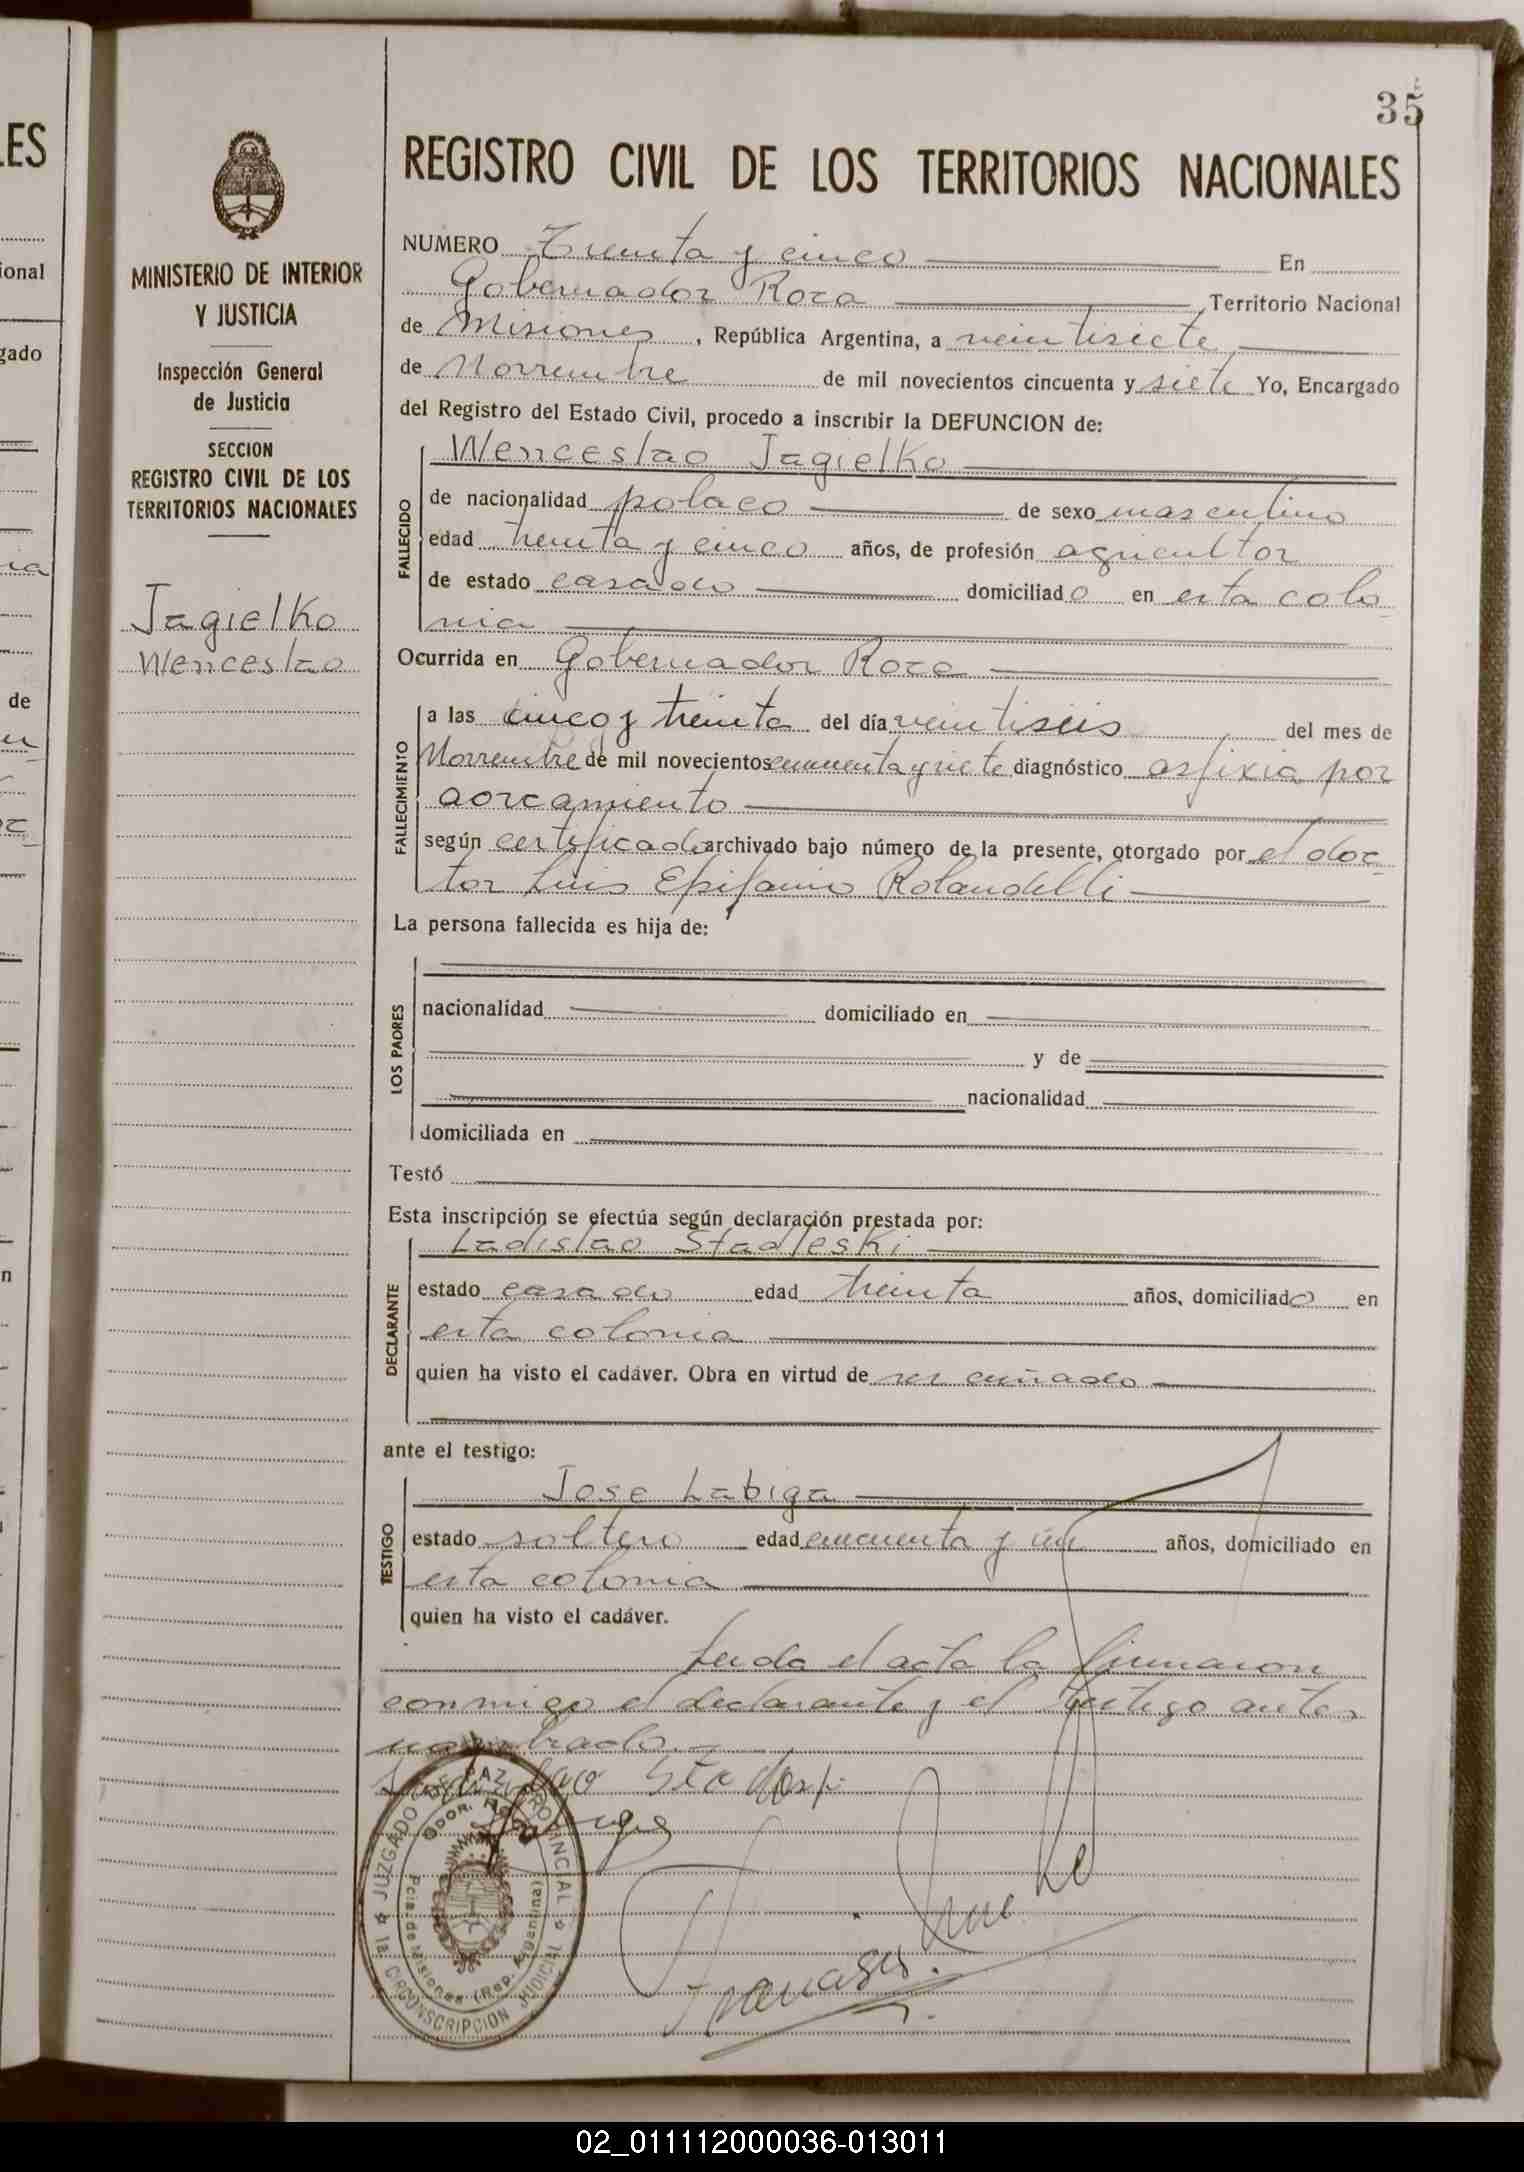 35
REGISTRO CIVIL DE LOS TERRITORIOS NACIONALES
MINISTERIO DE INTERIOR
Y JUSTICIA
Inspección General
de Justicia
SECCION
REGISTRO CIVIL DE LOS
TERRITORIOS NACIONALES
Jagielko
Wenceslao
NUMERO Treinta y cinco En
Gobernador Roca Territorio Nacional
de Misiones, República Argentina, a veintisiete
de Noviembre de mil novecientos cincuenta y siete Yo, Encargado
del Registro del Estado Civil, procedo a inscribir la DEFUNCION de:
Wenceslao Jagielko
FALLECIDO
de nacionalidad polaco de sexo masculino
edad treinta y cinco años, de profesión agricultor
de estado casado domiciliado en esta colo
nia
Ocurrida en Gobernador Roca
FALLECIMIENTO
a las cinco y treinta del día veintiseis del mes de
Noviembre de mil novecientos cincuenta y siete diagnóstico asfixia por
aorcamiento
según certificado archivado bajo número de la presente, otorgado por el doc
tor Luis Epifanio Rolandelli
La persona fallecida es hija de:
LOS PADRES
nacionalidad domiciliado en
y de
nacionalidad
domiciliada en
Testó
Esta inscripción se efectúa según declaración prestada por:
Ladislao Stadleski
DECLARANTE
estado casado edad treinta años, domiciliado en
esta colonia
quien ha visto el cadáver. Obra en virtud de ser cuñado
ante el testigo:
Jose Labiga
TESTIGO
estado soltero edad cincuenta y un años, domiciliado en
esta colonia
quien ha visto el cadáver.
Leida el acta la firmaron
conmigo el declarante y el testigo antes
nombrado.
JUZGADO DE PAZ PROVINCIAL
1a CIRCONSCRIPCION JUDICIAL
Gdor. Roca
Pcia. de Misiones (Rep. Argentina)
ES
ional
gado
de
n
02_011112000036-013011